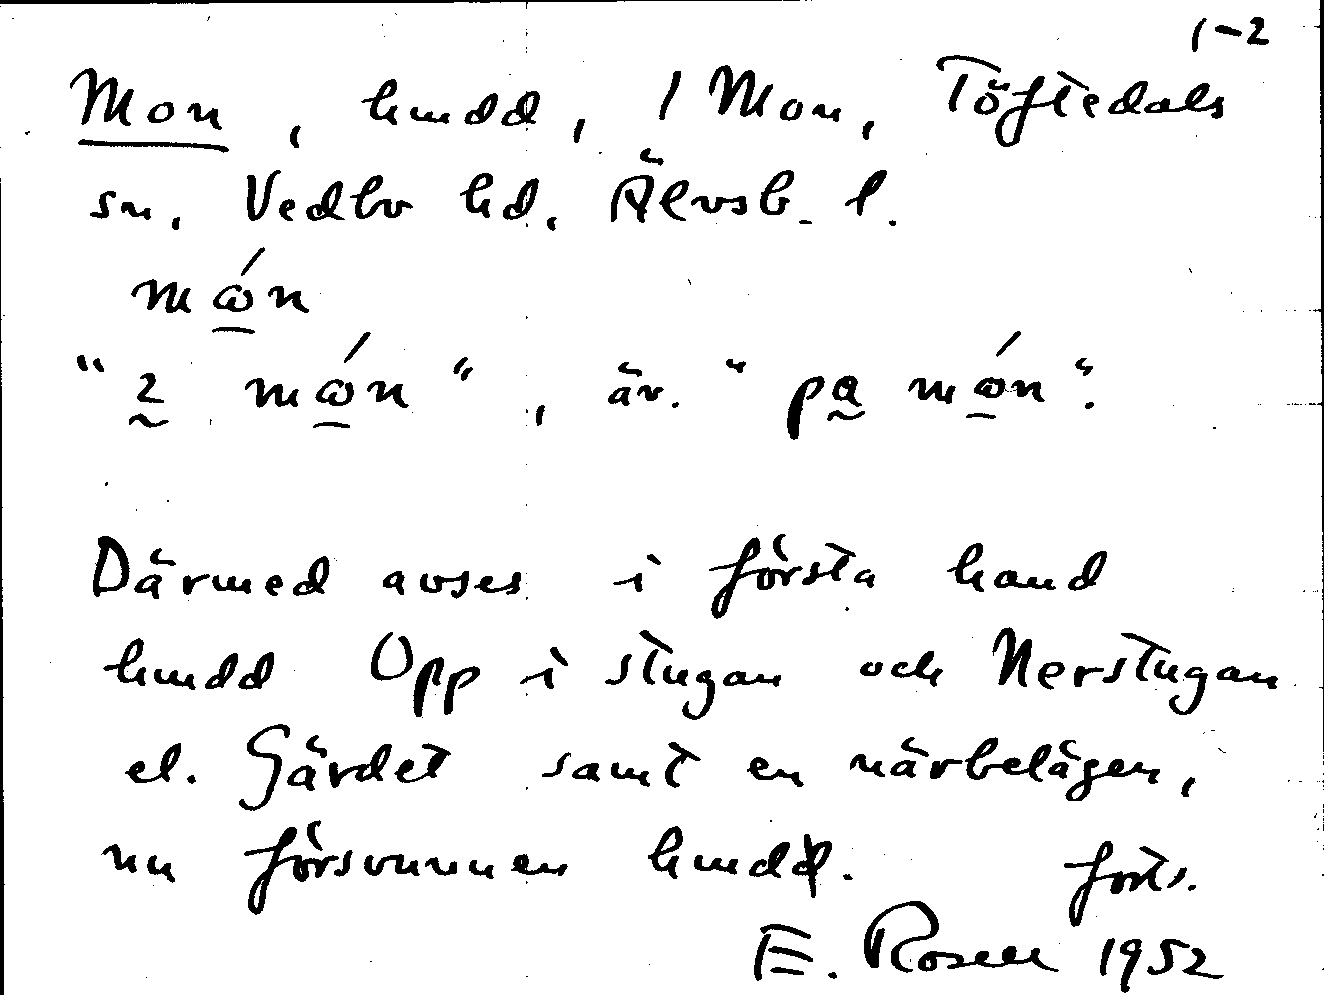 1-2
Mon, hmdd, 1 Mon, Töftedals
sn, Vedbo hd, Älvsb. l.
mớn
"2 mớn", äv. "pa mớn".
Därmed avses i första hand
hmdd Opp i stugan och Nerstugan
el. Gärdet samt en närbelägen,
nu försvunnen hmdd. forts.
E. Rosell 1952